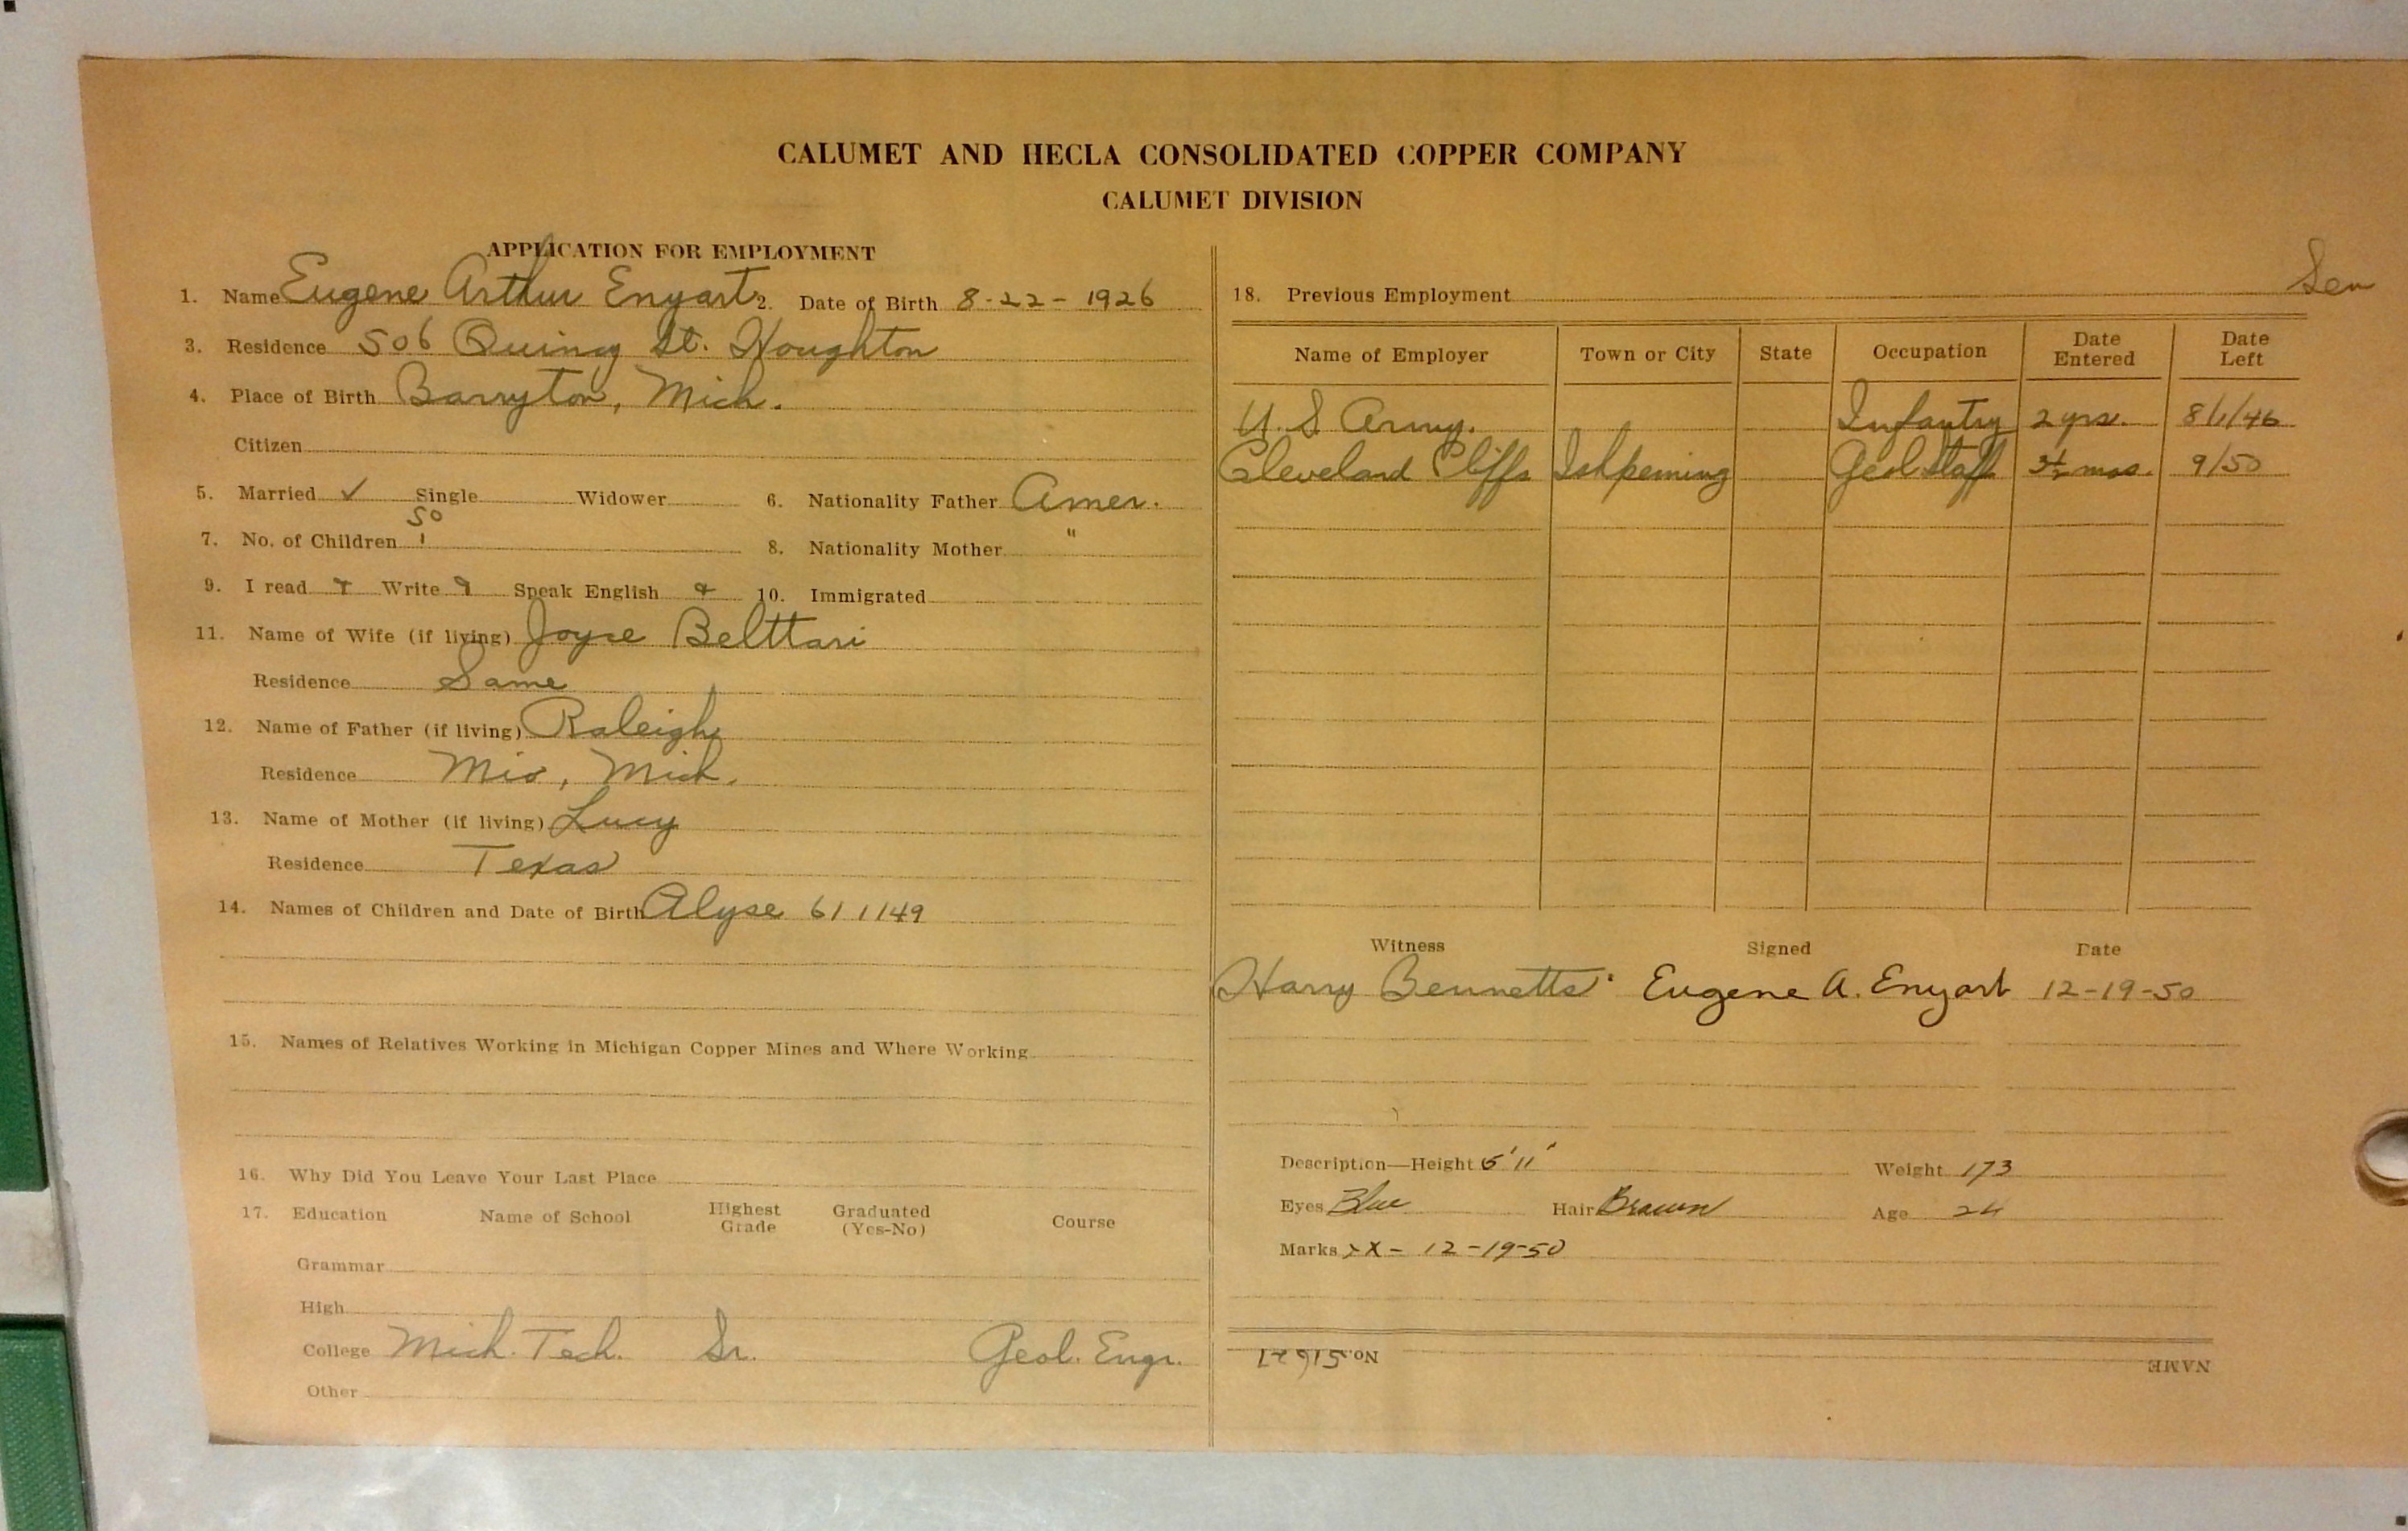 CALUMET AND HECLA CONSOLIDATED COPPER COMPANY
CALUMET DIVISION
APPLICATION FOR EMPLOYMENT
1. Name Eugene Arthur Enyart 2. Date of Birth 8-22-1926
3. Residence 506 Quincy St. Houghton
4. Place of Birth Barryton, Mich.
Citizen
5. Married ✓ Single Widower 6. Nationality Father Amer.
50
7. No. of Children 1 8. Nationality Mother "
9. I read Write Speak English 10. Immigrated
11. Name of Wife (if living) Joyce Belttari
Residence Same
12. Name of Father (if living) Raleigh
Residence Mio, Mich.
13. Name of Mother (if living) Lucy
Residence Texas
14. Names of Children and Date of Birth Alyse 6/1/49
15. Names of Relatives Working in Michigan Copper Mines and Where Working
16. Why Did You Leave Your Last Place
17. Education Name of School Highest Grade Graduated (Yes-No) Course
Grammar
High
College Mich. Tech. Sr. Geol. Engr.
Other
18. Previous Employment
Name of Employer Town or City State Occupation Date Entered Date Left
U.S Army. Infantry 2 yrs. 8/1/46
Cleveland Cliffs Ishpeming Geol Staff mos. 9/50
Witness Signed Date
Harry Bennetts Eugene A. Enyart 12-19-50
Description—Height 5'11" Weight 173
Eyes Blue Hair Brown Age 24
Marks XX- 12-19-50
No. 51627 NAME